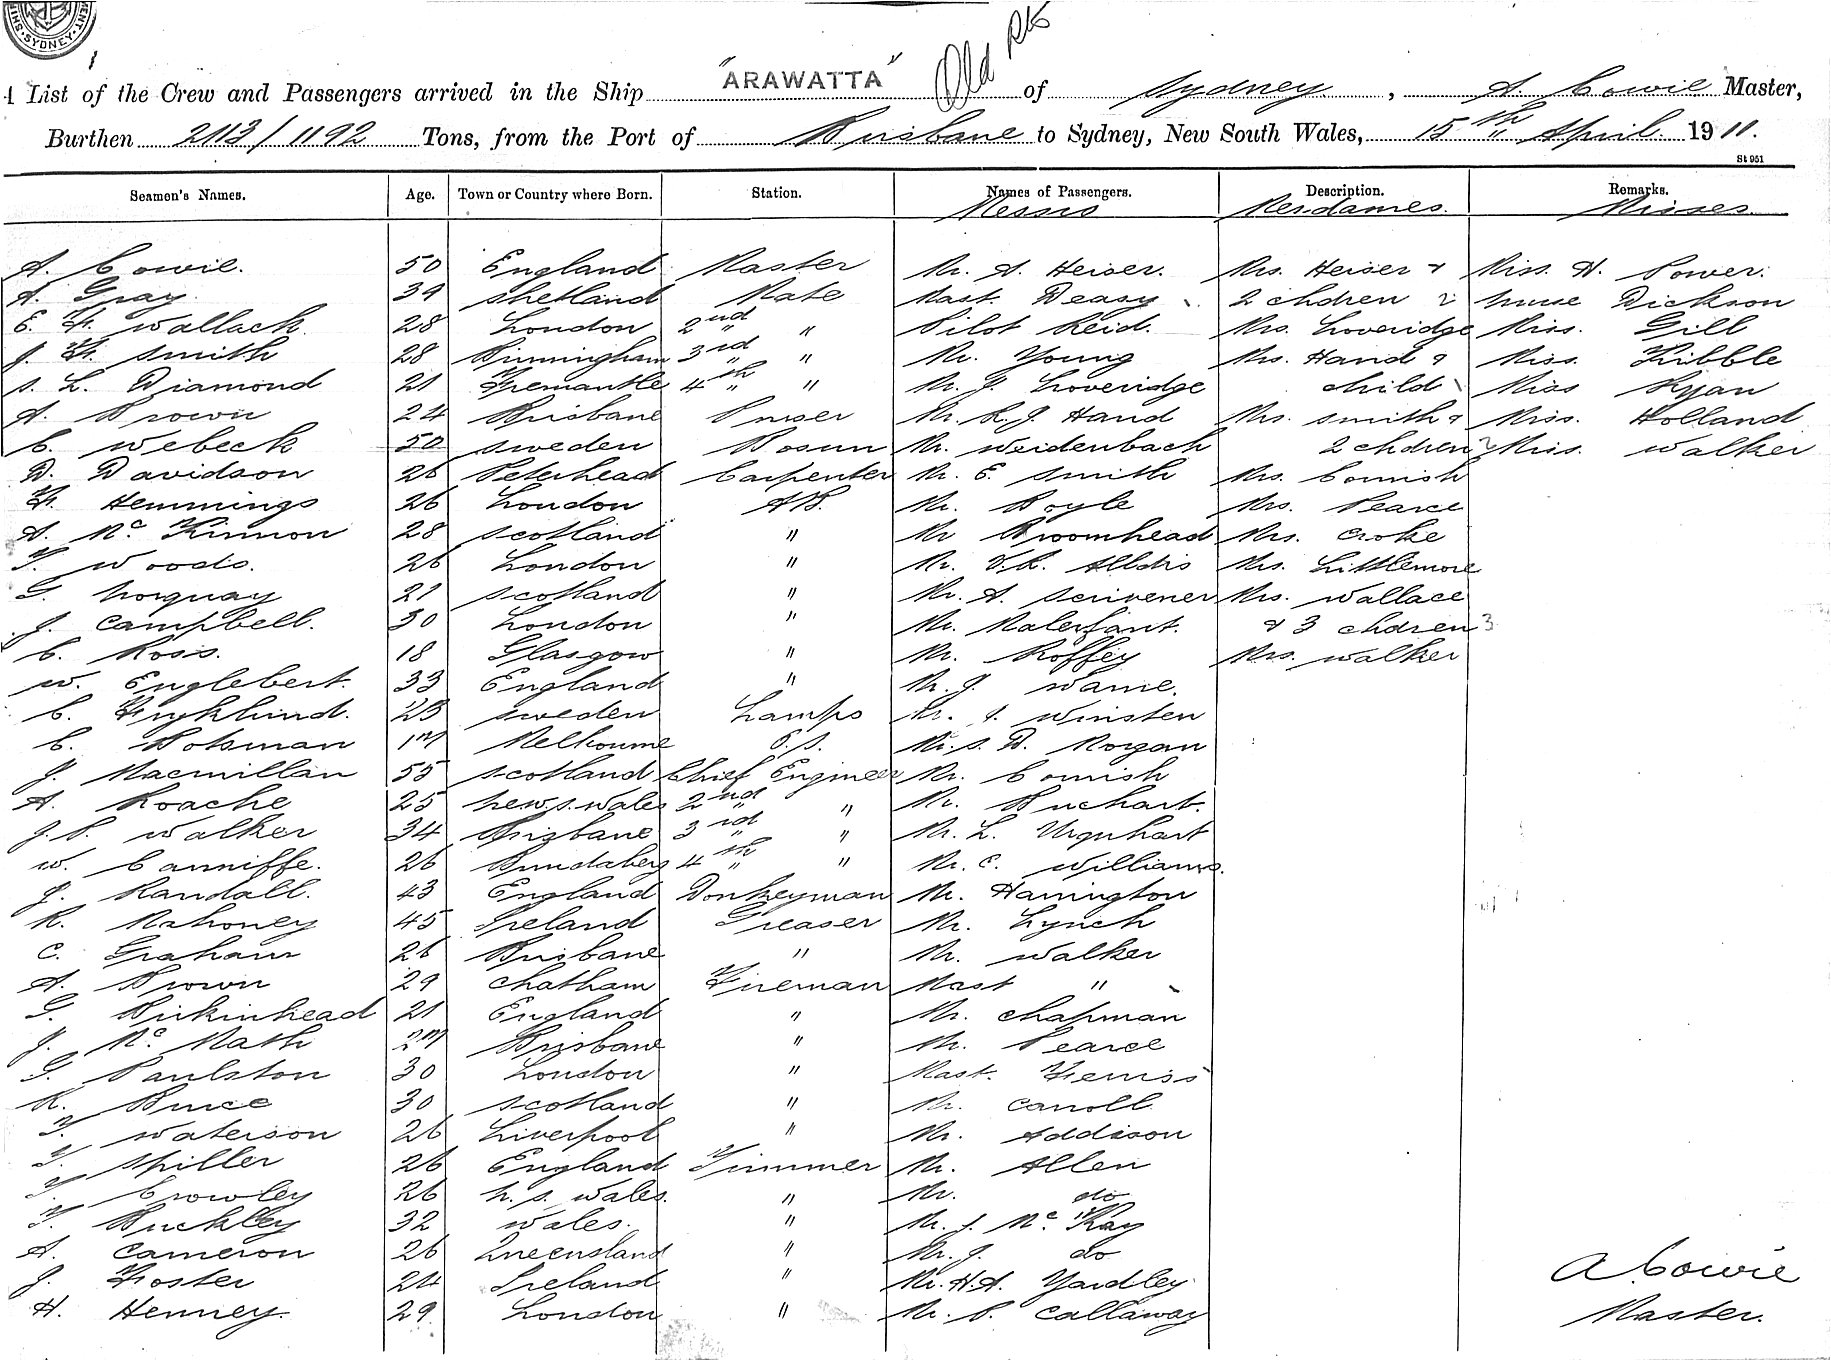 SYDNEY
Old
A List of the Crew and Passengers arrived in the Ship "ARAWATTA" of Sydney, A. Cowie Master,
Burthen 2113/1192 Tons, from the Port of Brisbane to Sydney, New South Wales, 15th April 1911.
St 951
Seamen's Names. Age. Town or Country where Born. Station. Names of Passengers. Description. Remarks.
Messrs Mesdames. Misses.
A. Cowie. 50 England Master Mr. A. Heiser. Mrs. Heiser & Miss. H. Power.
A. Gray. 39 Shetland Mate Mast. Deasy 2 chdren 2 nurse Dickson
E. F. Wallack. 28 London 2nd " Pilot Reid. Mrs. Loveridge Miss. Gill
J. F. Smith 28 Birmingham 3rd " Mr. Young Mrs. Hand & Miss. Kibble
S. L. Diamond 21 Fremantle 4th " Mr. J. Loveridge child Miss Ryan
A. Brown 24 Brisbane Purser Mr. R. J. Hand Mrs. Smith & Miss. Holland
C. Webeck 50 Sweden Bosun Mr. Weidenbach 2 chdren 2 Miss. Walker
D. Davidson 26 Peterhead Carpenter Mr. E. Smith Mrs. Cornish
F. Hemmings 26 London AB. Mr. Boyle Mrs. Pearce
A. McKinnon 28 Scotland " Mr Broomhead Mrs. Croke
T. Woods. 26 London " Mr. V. R. Alldis Mrs. Littlemore
G. Norquay 21 Scotland " Mr. A. Scrivener Mrs. Wallace
J. Campbell. 30 London " Mr. Malenfant. & 3 chdren 3
C. Ross. 18 Glasgow " Mr. Roffey Mrs. Walker
W. Englebert. 33 England " Mr. J. Warne.
C. 23 Sweden Lamps Mr. J. Winsten
C. Botsman 17 Melbourne O.S. D. Morgan
J. Macmillan 55 Scotland Chief Engineer Mr. Cornish
A. Roache 25 New S. Wales 2nd " Mr. Buchart.
J. P. Walker 34 Brisbane 3rd " Mr. L. Urquhart
W. Canniffe. 26 Bundaberg 4th " Mr. C. Williams.
J. Randall. 43 England Donkeyman Mr. Harrington
R. Mahoney 45 Ireland Greaser Mr. Lynch
C. Graham 26 Brisbane " Mr. Walker
A. Brown 29 Chatham Fireman Mast "
G. Birkinhead 21 England " Mr. Chapman
J. McMath 27 Brisbane " Mr. Pearce
G. Paulston 30 London " Mast. Ferriss
R. Bruce 30 Scotland " Mr. Carroll
T. Waterson 26 Liverpool " Mr. Addison
T. Spiller 26 England Trimmer Mr. Allen
T. Crowley 26 N. S. Wales. " Mr. do
T. Buckley 32 Wales. " Mr. J. McKay
A. Cameron 26 Queensland " Mr. J. do
J. Foster 24 Ireland " Mr. H. A. Yardley
H. Henney. 29 London " Mr. P. Callaway
A Cowie
Master.